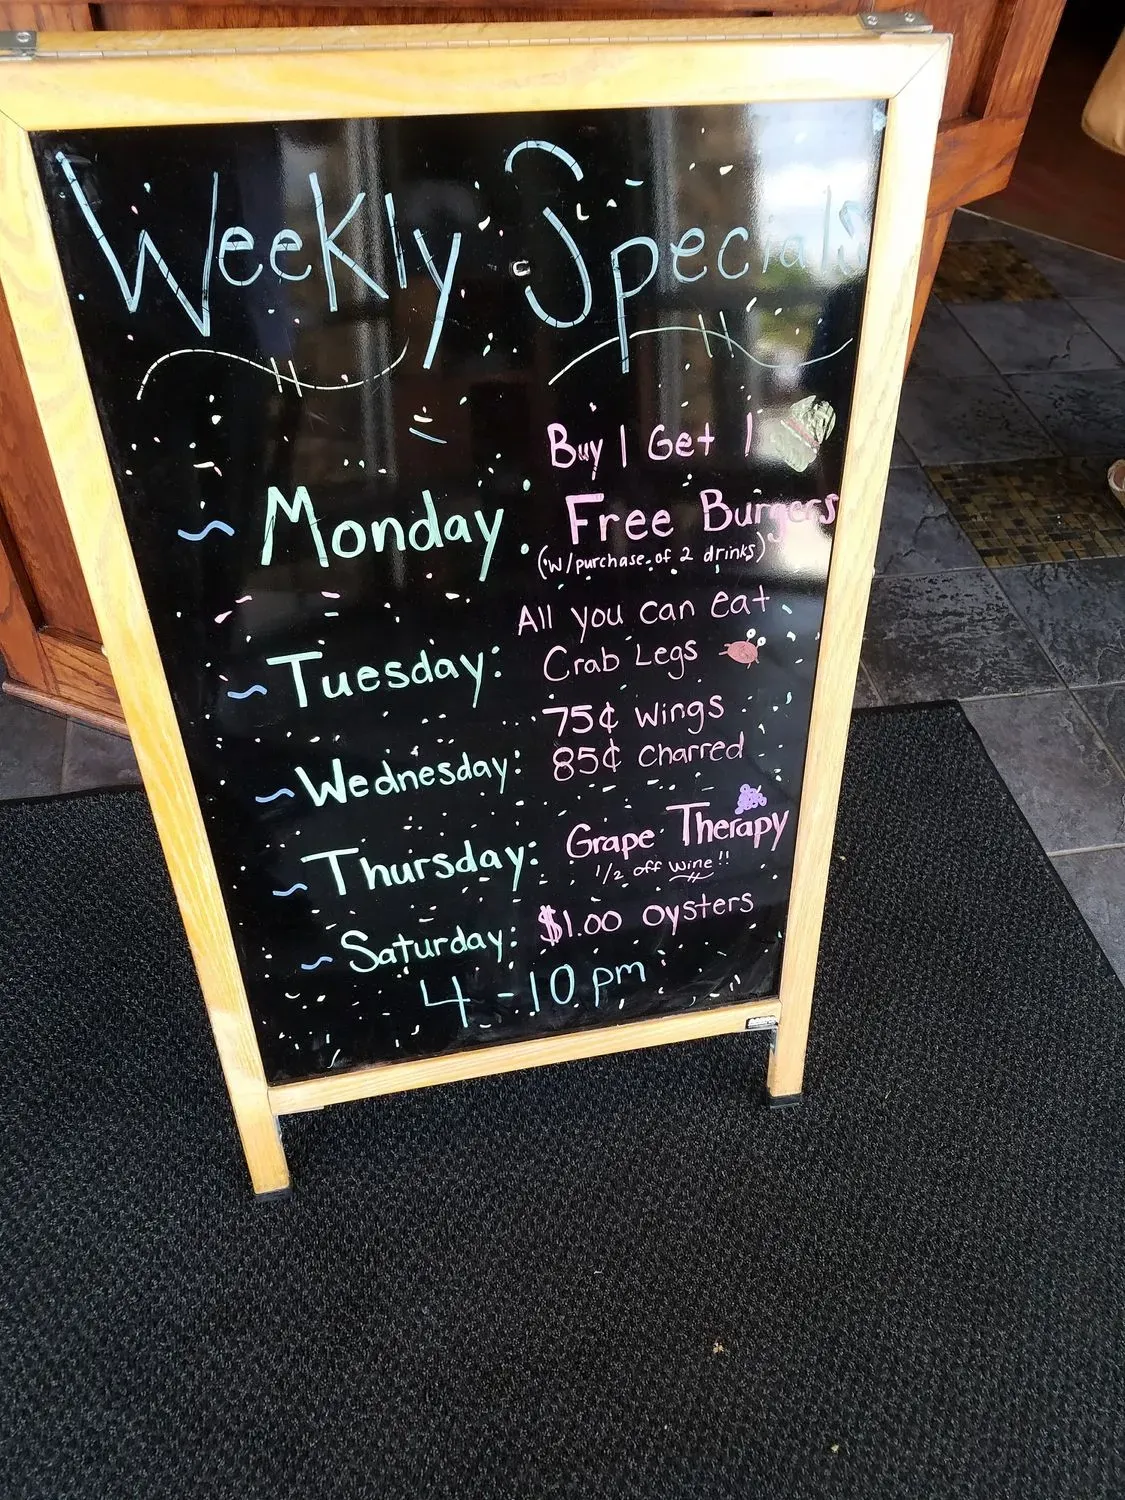 Weekly Specials
Buy 1 Get 1
Monday: Free Burgers
(w/purchase of 2 drinks)
All you can eat
Tuesday: Crab Legs
75¢ wings
Wednesday: 85¢ charred
Thursday: Grape Therapy
1/2 off wine!!
Saturday: $1.00 oysters
4-10pm